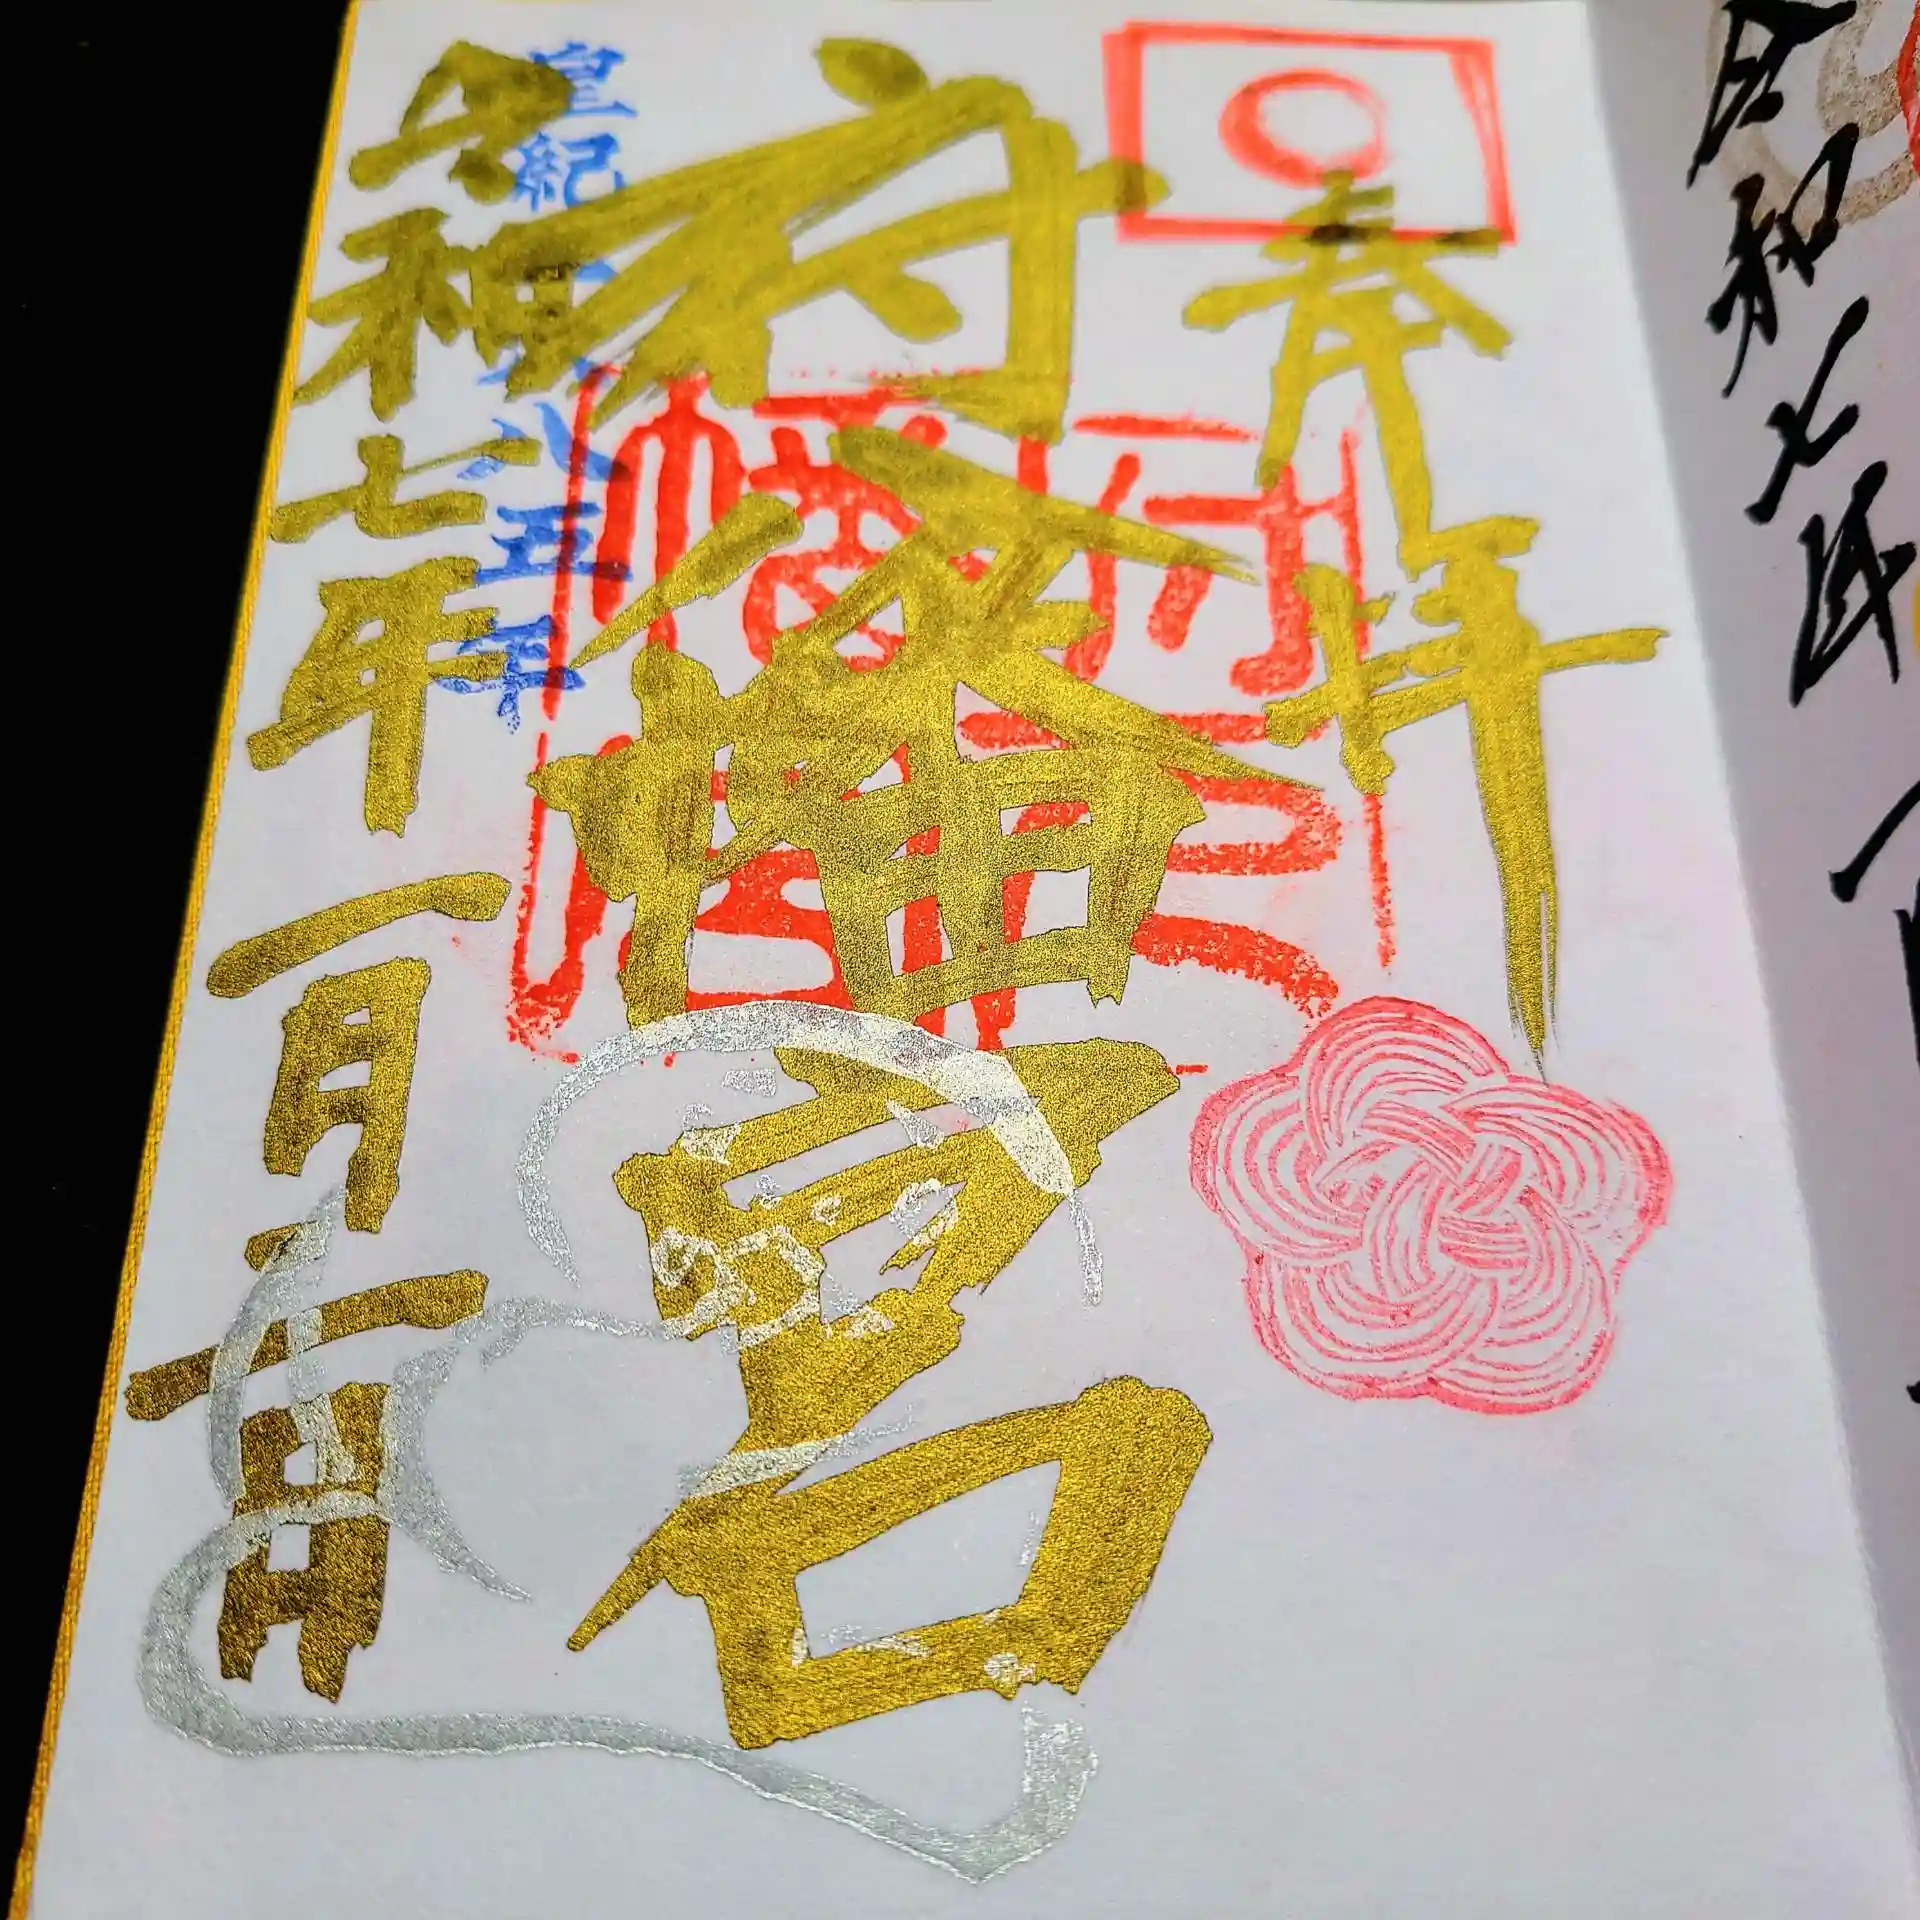 奉拝
府八幡宮
府八幡宮
皇紀二六八五年
令和七年一月
令和七年一